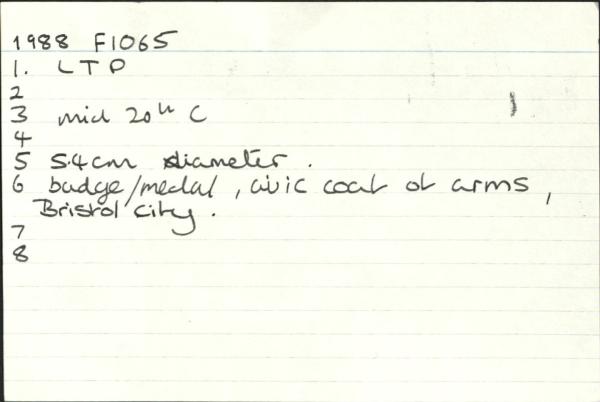 1988 F1065
1. LTP
2
3 mid 20th C
4
5 5.4cm diameter.
6 badge/medal, civic coat of arms,
Bristol City.
7
8